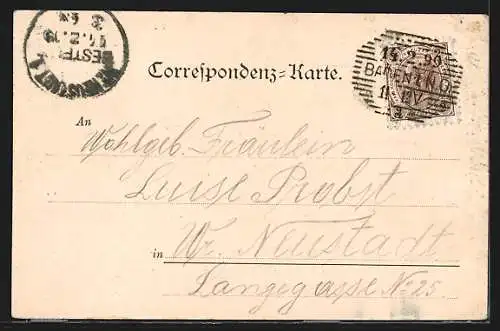 BESTELLT
Correspondenz=Karte.
14.2.99
BADEN N.Ö.
An
Wohlgeb. Fräulein
Luise Probst
in Wr. Neustadt
Langegasse No 25.